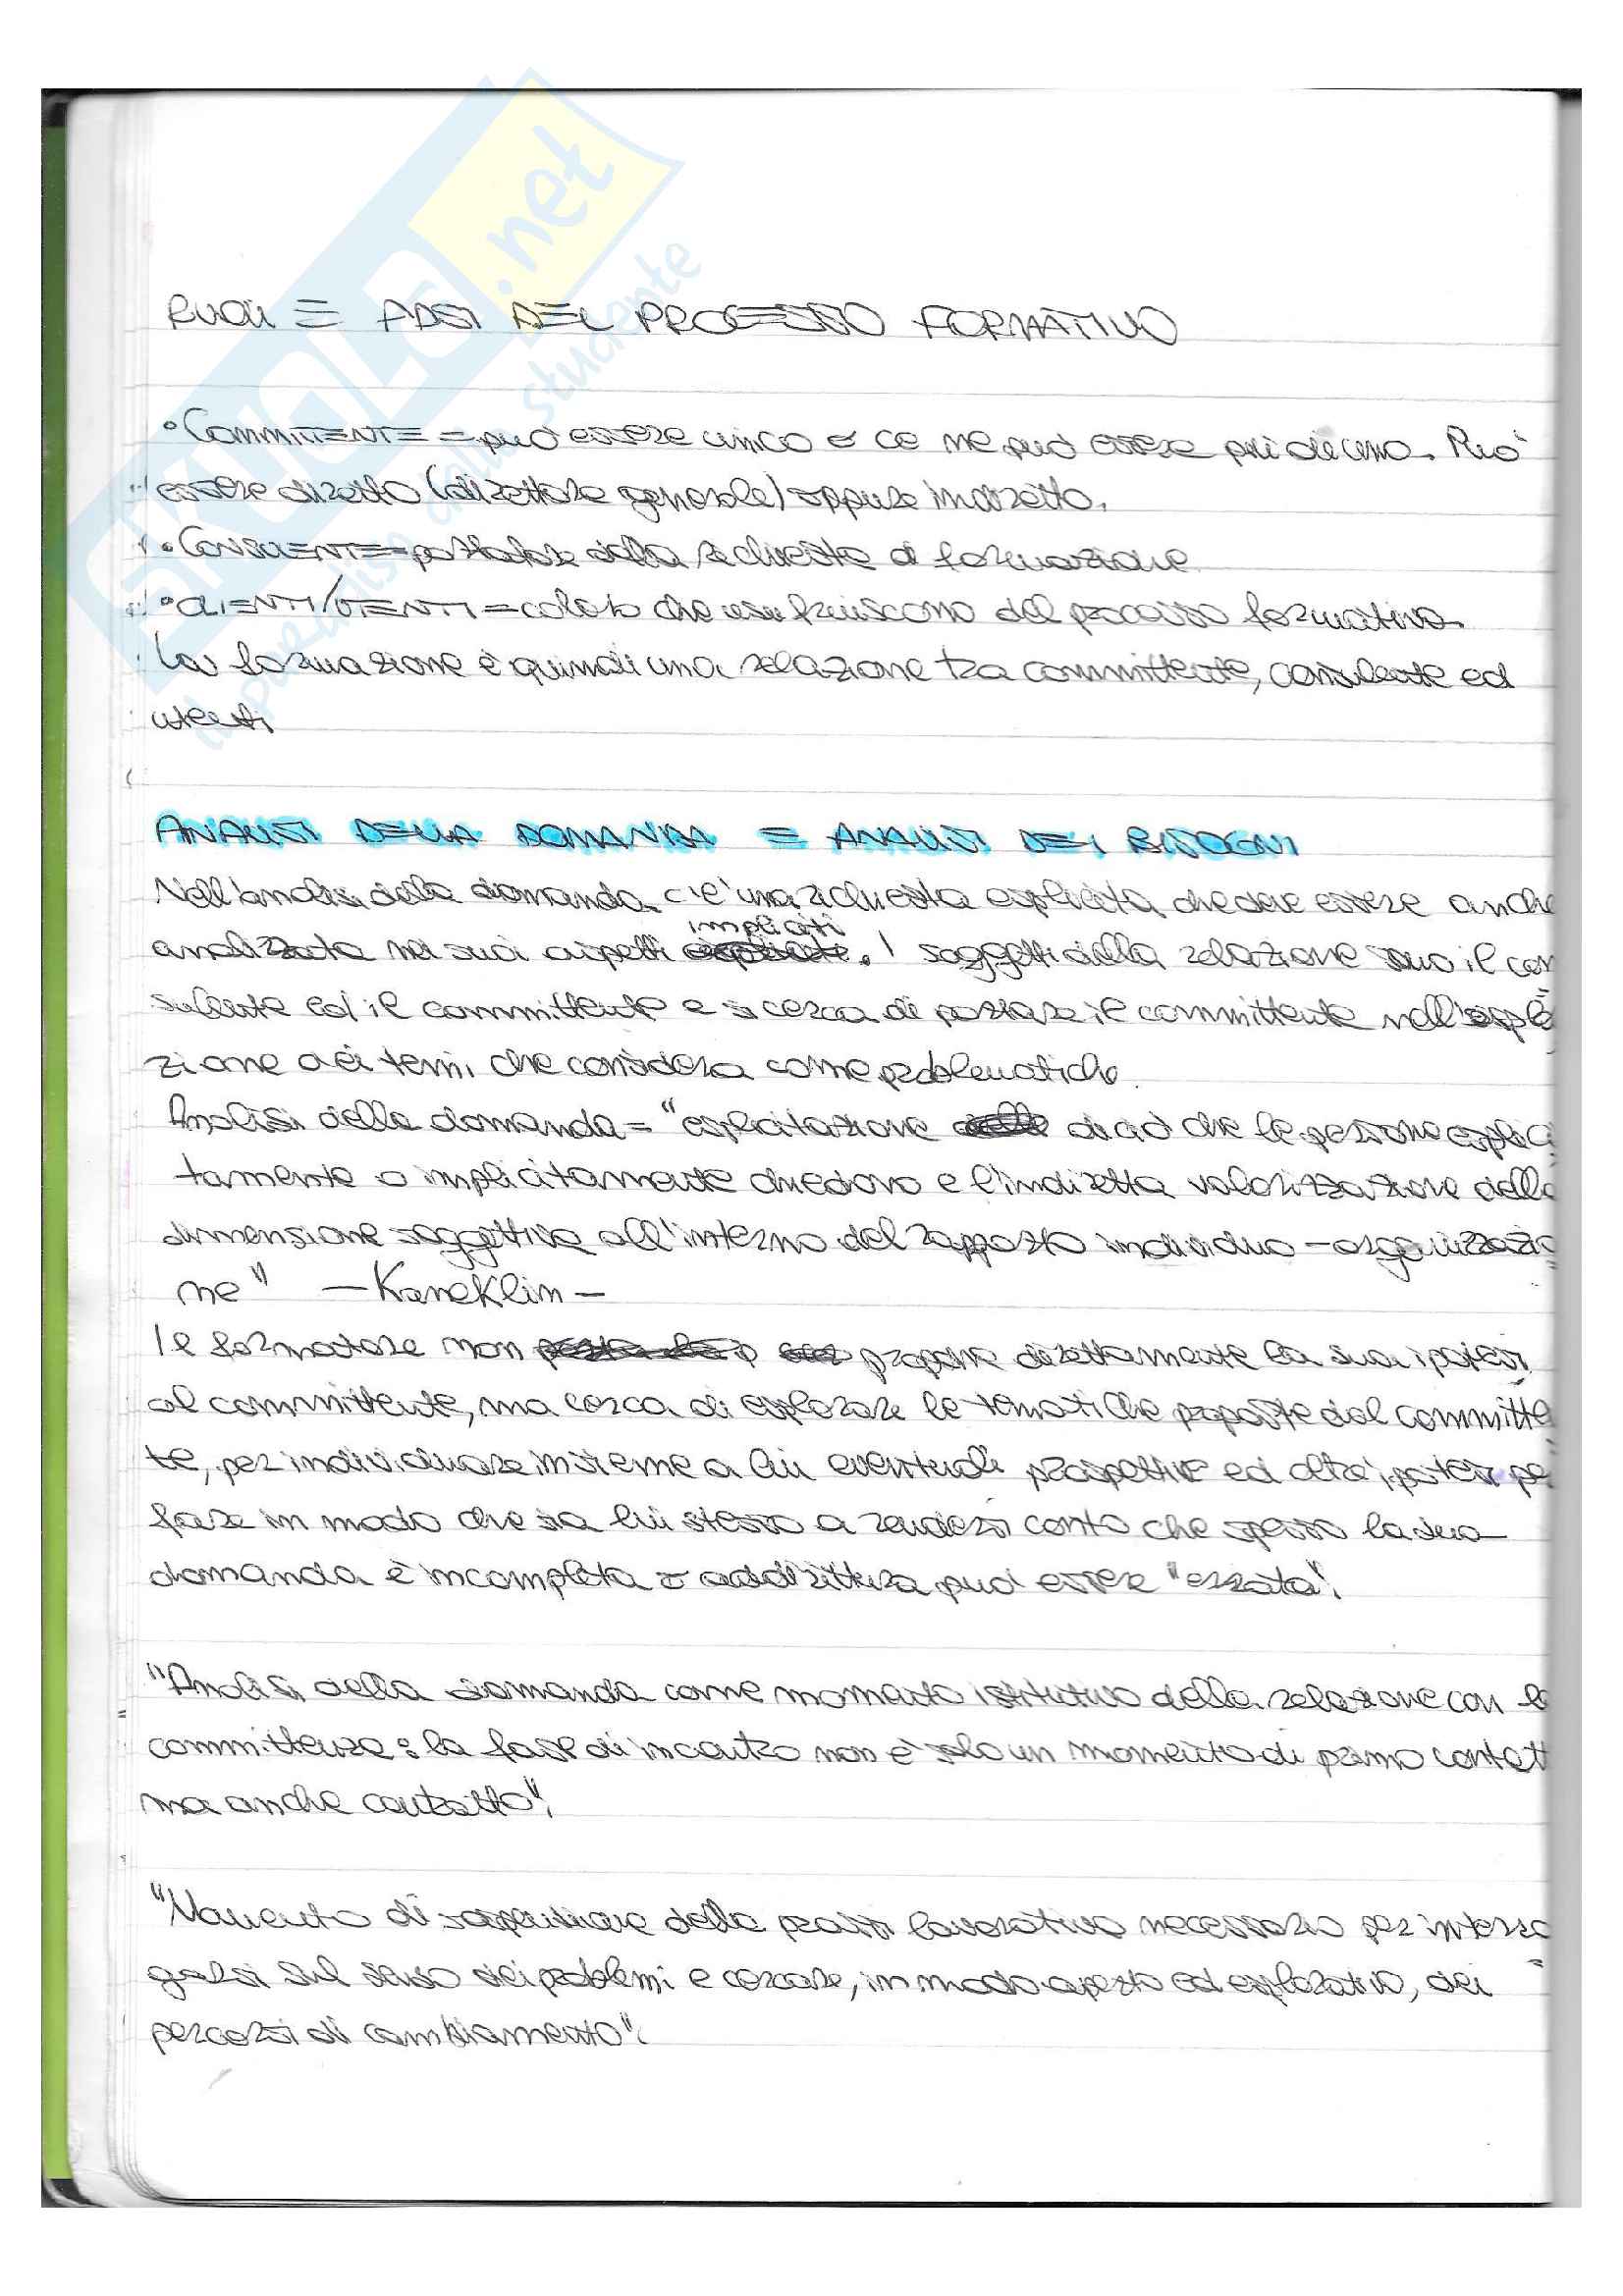 SKUOLA.net
il paradiso dello studente
RUOLI E FASI DEL PROCESSO FORMATIVO
• COMMITTENTE = può essere unico o ce ne può essere più di uno. Può
essere diretto (direttore generale) oppure indiretto.
• CONSULENTE = portatore della richiesta di formazione
• CLIENTI/UTENTI = coloro che usufruiscono del processo formativo.
La formazione è quindi una relazione tra committente, consulente ed
utenti
ANALISI DELLA DOMANDA E ANALISI DEI BISOGNI
Nell'analisi della domanda c'è una richiesta esplicita che deve essere anche
impliciti
analizzata nei suoi aspetti . I soggetti della relazione sono il con
sulente ed il committente e si cerca di portare il committente nell'esplo
zione dei temi che considera come problematiche.
Analisi della domanda = "esplicitazione di ciò che le persone esplici
tamente o implicitamente chiedono e l'indiretta valorizzazione della
dimensione soggettiva all'interno del rapporto individuo - organizzazio
ne" - Kaneklin -
Il formatore non propone direttamente la sua ipotesi
al committente, ma cerca di esplorare le tematiche proposte dal committe
te, per individuare insieme a lui eventuali prospettive ed altre ipotesi pe
fare in modo che sia lui stesso a rendersi conto che spesso la sua
domanda è incompleta o addirittura può essere "errata".
"Analisi della domanda come momento istitutivo della relazione con la
committenza: la fase di incontro non è solo un momento di primo contatt
ma anche contratto".
"Momento di sospensione della prassi lavorativa necessario per interro
garsi sul senso dei problemi e cercare, in modo aperto ed esplorativo, dei
percorsi di cambiamento".